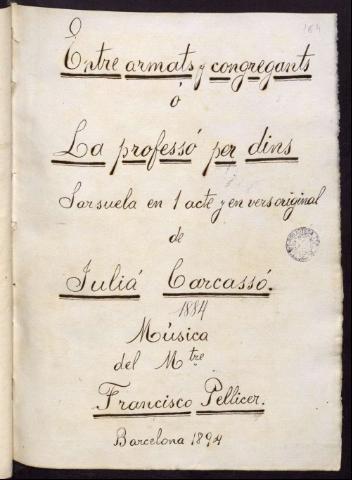 Entre armats y congregants
ó
La professó per dins
Sarsuela en 1 acte y en vers original
de
Juliá Carcassó.
1884
Música
del Mtre
Francisco Pellicer.
Barcelona 1894